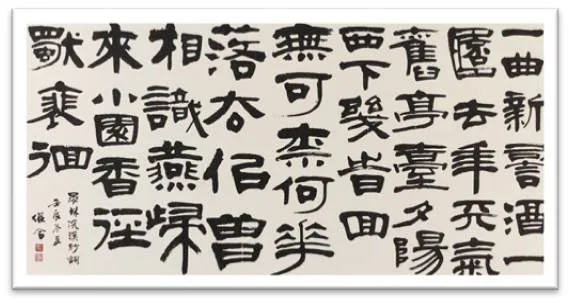 一曲新詞酒一
杯去年天氣
舊亭臺夕陽
西下幾旹回
無可柰何華
落去佀曾
相識燕歸
來小園香徑
獨裴徊
晏殊浣溪沙詞
壬辰冬